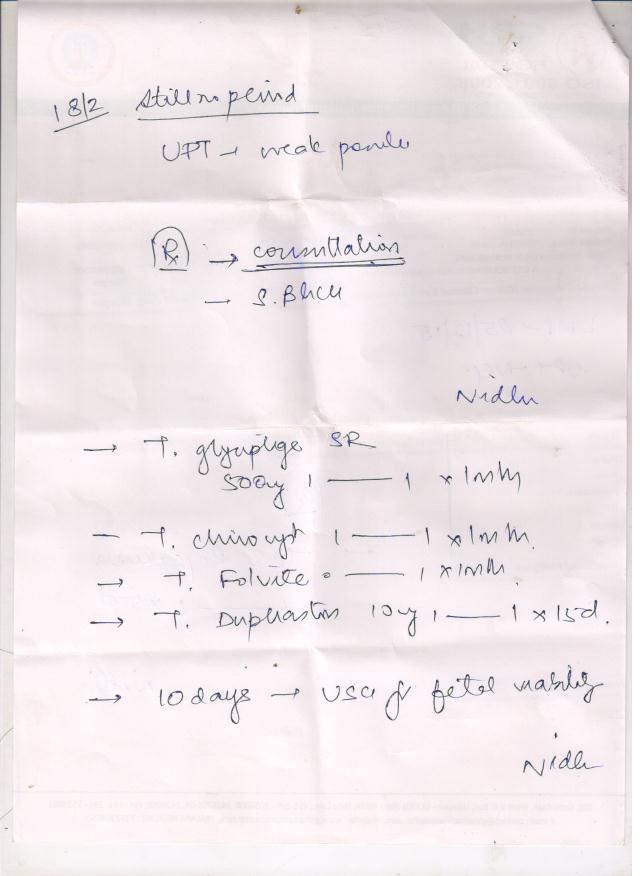 18/2 Still no period
UPT → weak
Rx → consultation
— S. BhCG
Nidhi
→ T. glyciphage SR
500mg 1 —— 1 x 1mth
— T. 1 —— 1 x 1mth.
→ T. Folvite 0 —— 1 x 1mth
→ T. Duphaston 10mg 1 —— 1 x 15d.
→ 10 days → USG for fetal viability
Nidhi